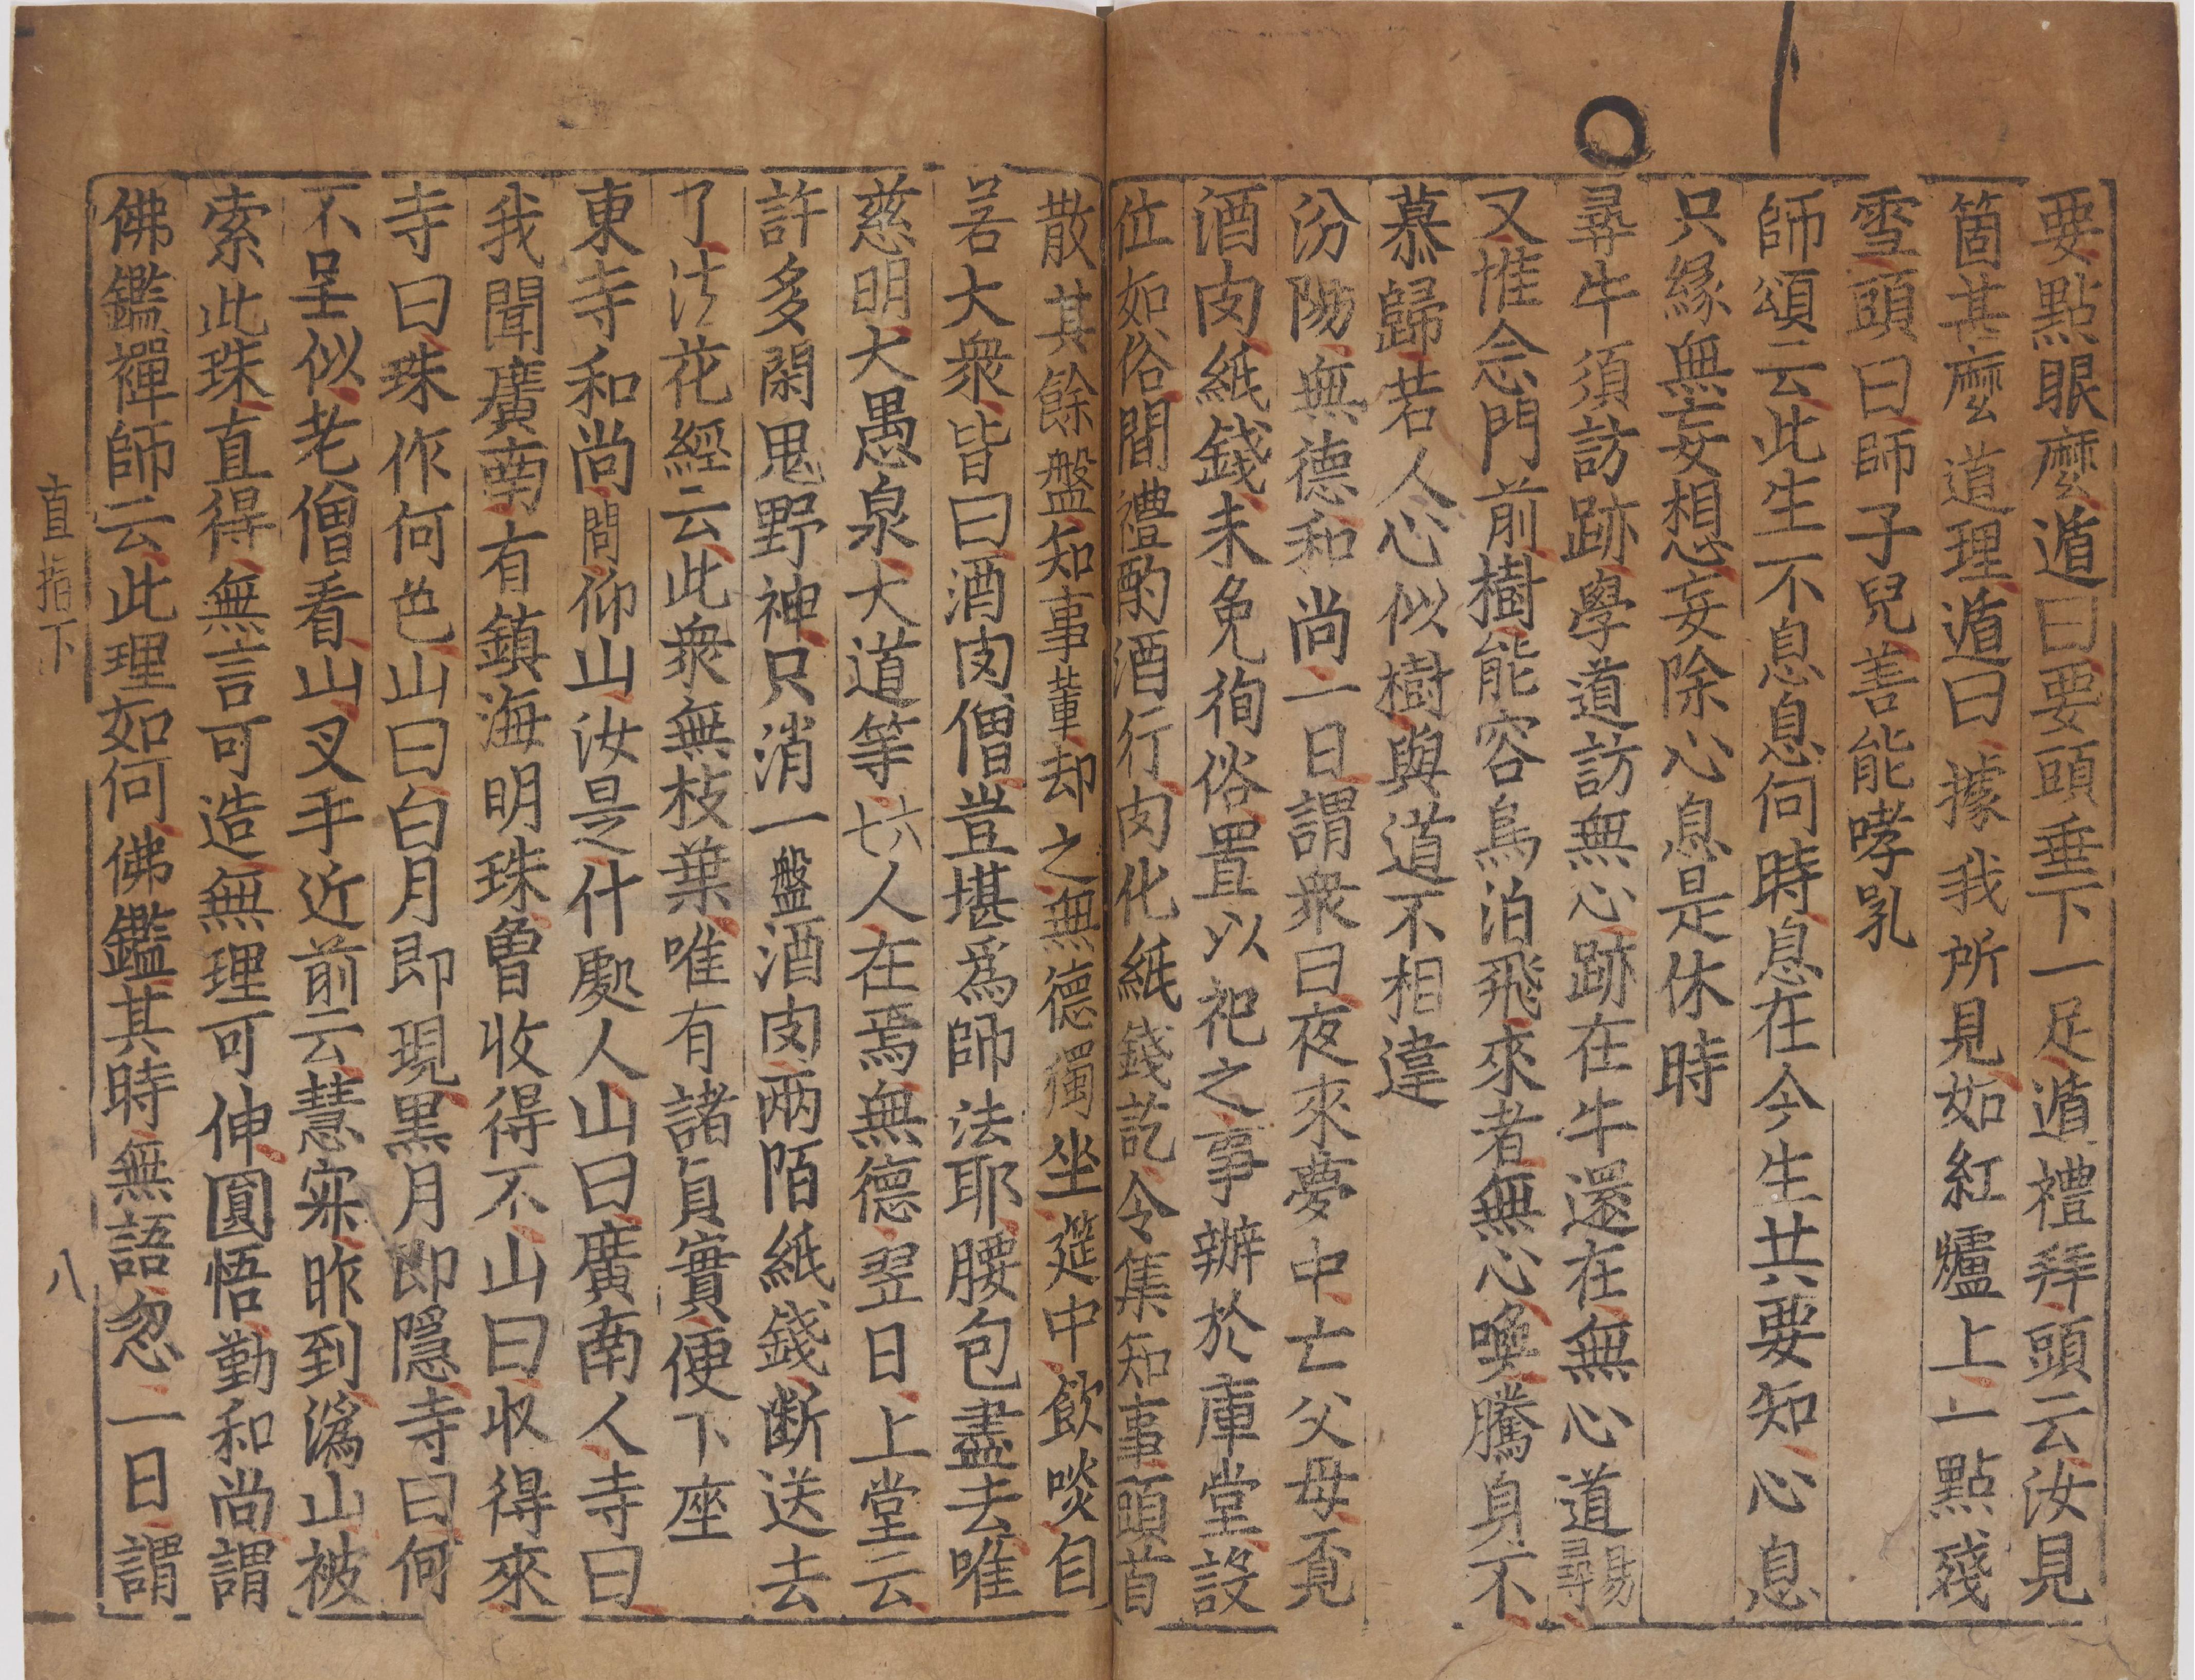 要點眼麽遁曰要頭垂下一足遁禮拜頭云汝見
箇甚麽道理遁曰據我所見如紅爐上一點殘
雪頭曰師子兒善能哮吼
師頌云此生不息息何時息在今生共要知心息
只緣無妄想妄除心息是休時
尋牛須訪跡學道訪無心跡在牛還在無心道易尋
又惟念門前樹能容鳥泊飛來者無心喚騰身不
慕歸若人心似樹與道不相違
汾陽無德和尚一日謂衆曰夜來夢中亡父母覓
酒肉紙錢未免徇俗置以祀之事辦於庫堂設
位如俗間禮酌酒行肉化紙錢訖令集知事頭首
散其餘盤知事輩却之無德獨坐筵中飮啖自
若大衆皆曰酒肉僧豈堪爲師法耶腰包盡去唯
慈明大愚泉大道等六七人在焉無德翌日上堂云
許多閑鬼野神只消一盤酒肉两陌紙錢斷送去
了法花經云此衆無枝葉唯有諸貞實便下座
東寺和尚問仰山汝是什處人山曰廣南人寺曰
我聞廣南有鎭海明珠曾收得不山曰收得來
寺曰珠作何色山曰白月即現黑月即隱寺曰何
不呈似老僧看山叉手近前云慧寂昨到潙山被
索此珠直得無言可造無理可伸圓悟勤和尚謂
佛鑑禪師云此理如何佛鑑其時無語忽一日謂
直指下
八